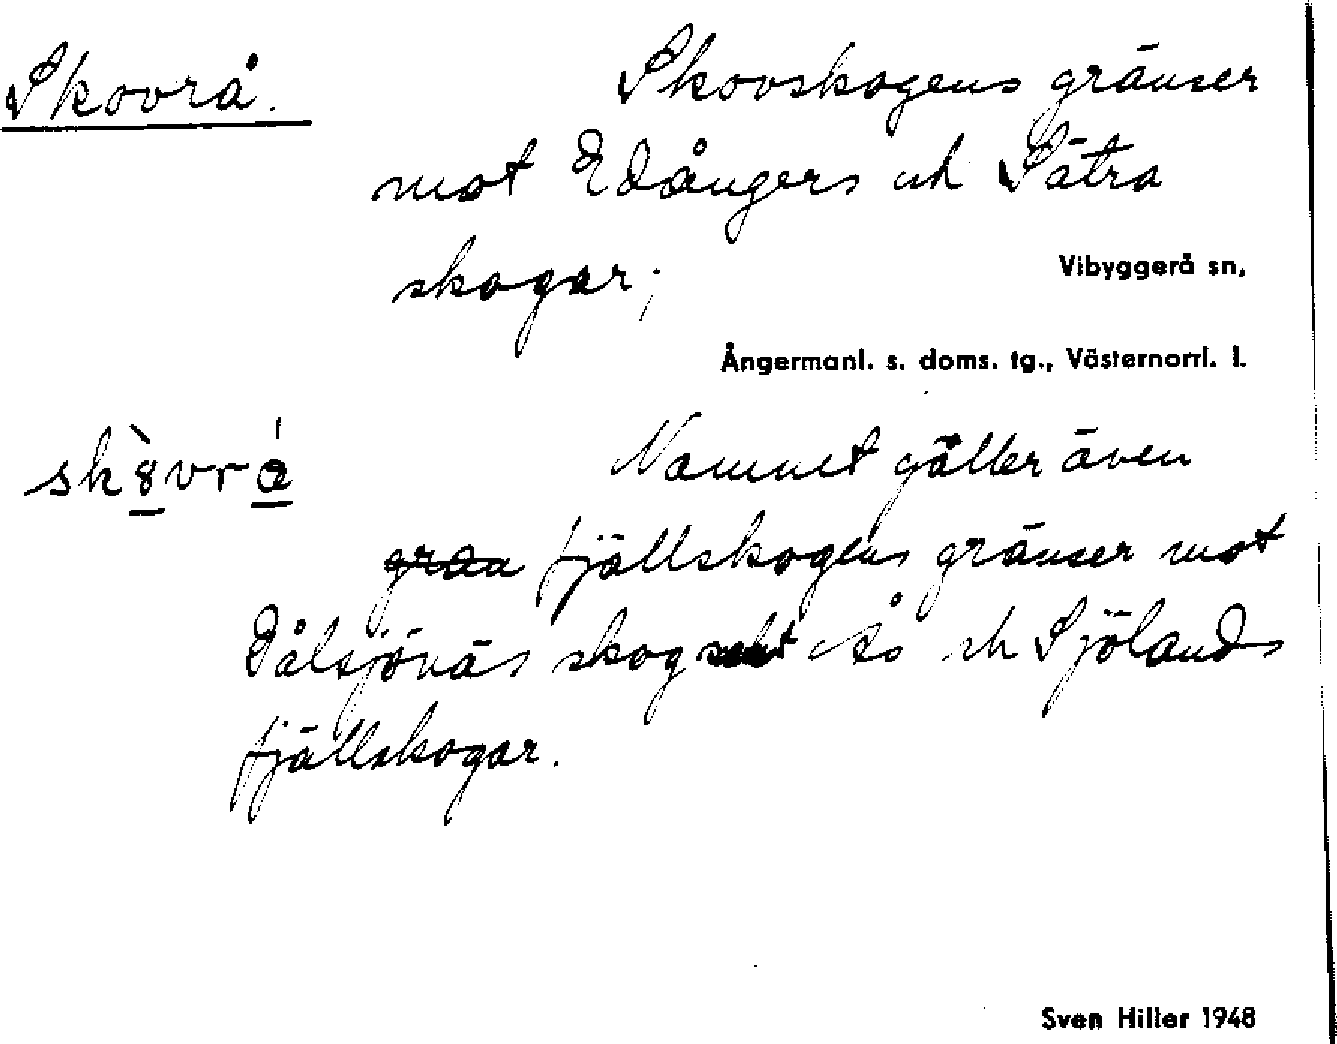 Skovrå. Skovskogens gränser
mot Edångers och Sätra
skogar;
Vibyggerå sn,
Ångermanl. s. doms. tg., Västernorrl. l.
Namnet gäller även
fjällskogens gränser mot
Dålsjönäs skog Ås och Sjölands
fjällskogar.
Sven Hiller 1948